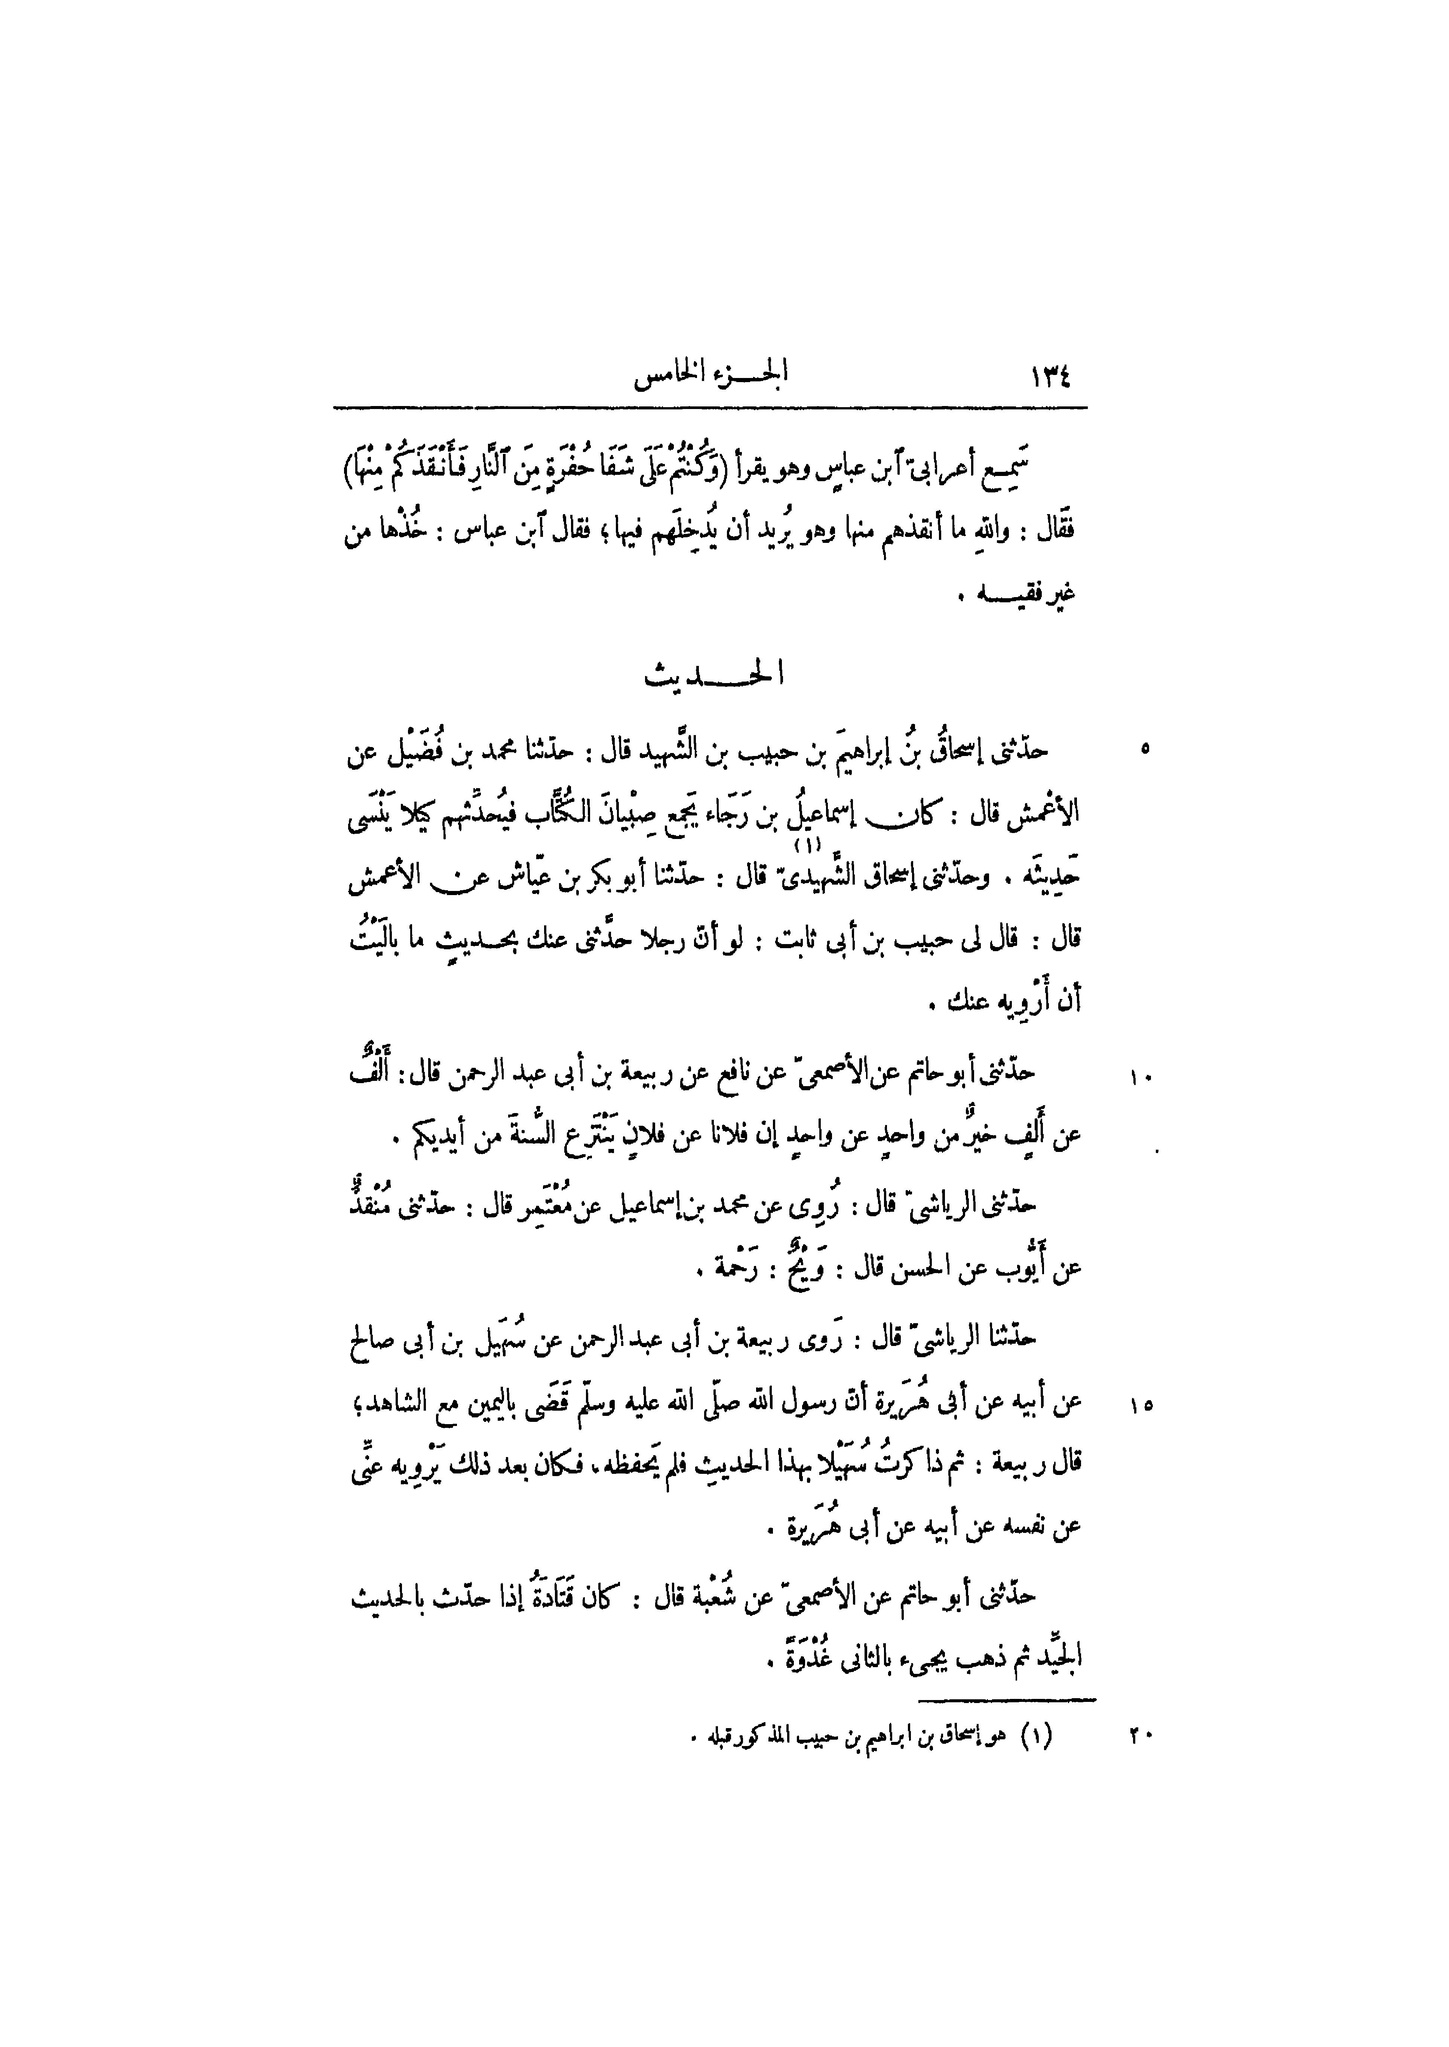 ١٣٤ الجزء الخامس
سَمِع أعرابىّ ٱبن عباسٍ وهو يقرأ (وَكُنْتُمْ عَلَى شَفَا حُفْرَةٍ مِنَ ٱلنَّارِ فَأَنْقَذَكُمْ مِنْهَا)
فقال : واللهِ ما أنقذهم منها وهو يُريد أن يُدخِلَهم فيها؛ فقال ٱبن عباس : خُذْها من
غير فقيه .
الحديث
٥ حدّثنى إسحاقُ بنُ إبراهيمَ بن حبيب بن الشَّهِيد قال : حدّثنا محمد بن فُضَيْل عن
الأعْمش قال : كان إسماعيلُ بن رَجَاء يَجمع صِبْيانَ الكُتَّاب فيُحدِّثهم كيلا يَنْسَى
حَدِيثَه . وحدّثنى إسحاق الشَّهِيدىّ (١) قال : حدّثنا أبو بكر بن عيّاش عن الأعمش
قال : قال لى حبيب بن أبى ثابت : لو أنّ رجلا حدَّثنى عنك بحديثٍ ما بالَيْتُ
أن أَرْوِيه عنك .
١٠ حدّثنى أبو حاتم عن الأصمعىّ عن نافع عن ربيعة بن أبى عبد الرحمن قال : أَلْفٌ
عن أَلفٍ خيرٌ من واحدٍ عن واحدٍ إن فلانا عن فلانٍ يَنْتَزِع السُّنةَ من أيديكم .
حدّثنى الرياشىّ قال : رُوِى عن محمد بن إسماعيل عن مُعْتَمِر قال : حدّثنى مُنْقذٌ
عن أَيُّوب عن الحسن قال : وَيْحٌ : رَحْمة .
حدّثنا الرياشىّ قال : رَوى ربيعة بن أبى عبد الرحمن عن سُهَيل بن أبى صالح
١٥ عن أبيه عن أبى هُرَيرة أنّ رسول الله صلّى الله عليه وسلّم قَضَى باليمين مع الشاهد؛
قال ربيعة : ثم ذاكرتُ سُهَيْلا بهذا الحديثِ فلم يَحفظه، فكان بعد ذلك يَرْوِيه عنِّى
عن نفسه عن أبيه عن أبى هُرَيرة .
حدّثنى أبو حاتم عن الأصمعىّ عن شُعْبة قال : كان قَتَادَةُ إذا حدّث بالحديث
الجيِّد ثم ذهب يجىء بالثانى غُدْوَةً .
٢٠ (١) هو إسحاق بن ابراهيم بن حبيب المذكور قبله .